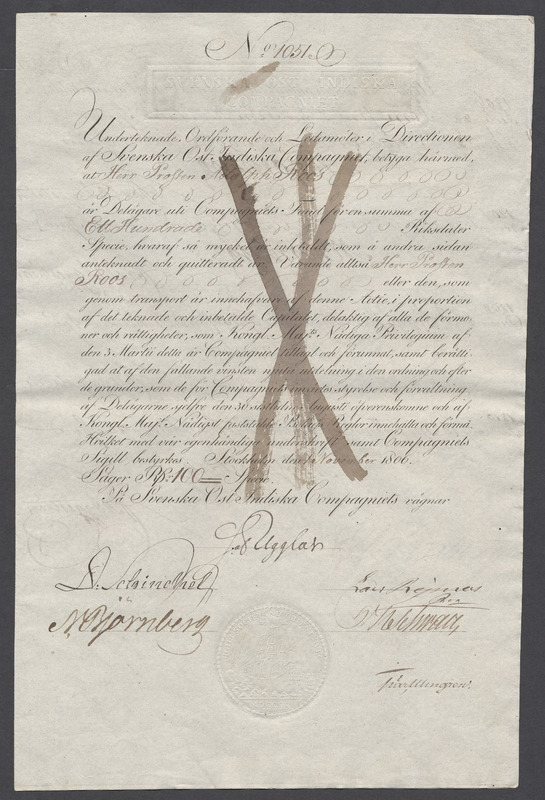 No 1051.
Underteknade, Ordförande och Ledamöter i Directionen
af Svenska Ost Indiska Compagniet, betyga härmed,
at Herr Prossen Adolph Roos
är Delägare uti Compagniets Fond för en summa af
Ett Hundrade Riksdaler
Specie, hvaraf så mycket är inbetaldt, som å andra sidan
anteknadt och quitteradt är; Varande altså Herr Prossen
Roos eller den, som
genom transport är innehafvare af denne Actie, i proportion
af det teknade och inbetalde Capitalet, delaktig af alla de förmo-
ner och rättigheter, som Kongl. Maj:ts Nådiga Privilegium af
den 3 Martii detta år Compagniet tillagt och förunnat, samt berätti-
gad at af den fallande vinsten niuta utdelning i den ordning och efter
de grunder, som de för Compagniets inrättes styrelse och förvaltning
af Delägarne sjelfve den 30 sistlidne Augusti öfverenskomne och af
Kongl. Maj:t Nådigst fastställde Reglor innehålla och förmå.
Hvilket med vår egenhändiga underskrift samt Compagniets
Sigill bestyrkes. Stockholm den 1 November 1806.
Säger Rdr 100 Specie.
På Svenska Ost Indiska Compagniets vägnar
af Ugglas
D. Schinckel
Lars Rejmers
N Björnberg